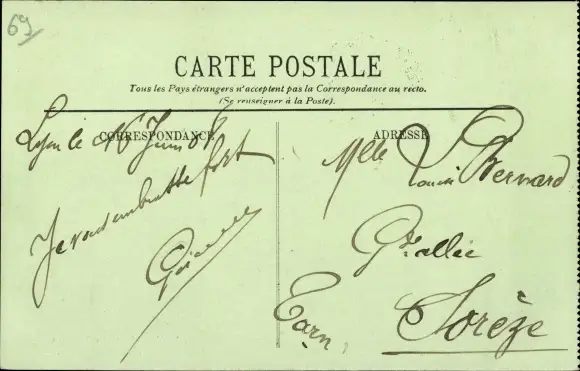 69
CARTE POSTALE
Tous les Pays étrangers n'acceptent pas la Correspondance au recto.
(Se renseigner à la Poste).
CORRESPONDANCE
Lyon le 16 Juin
Je vous embrasse fort
ADRESSE
Mlle Bernard
Gde allée
Sorèze
Tarn,